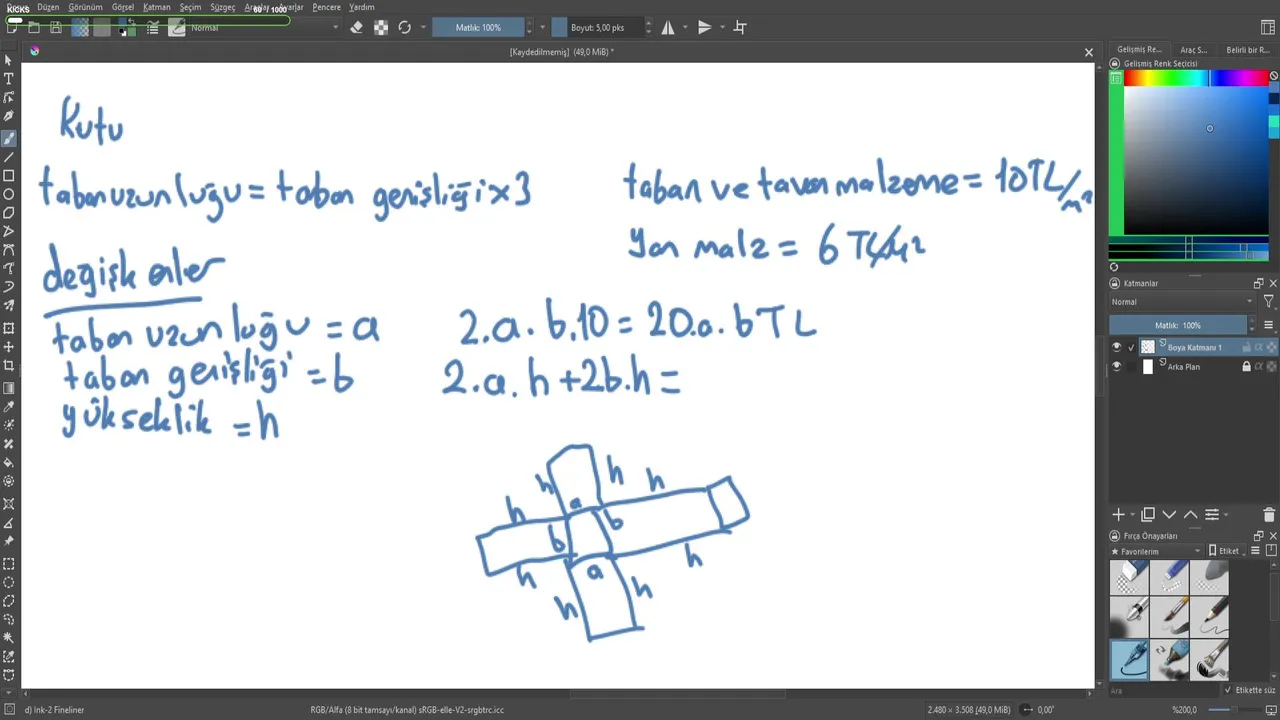 Dosya Düzen Görünüm Görsel Katman Seçim Süzgeç Araçlar Ayarlar Pencere Yardım
KICKS
60 / 1000
Normal
Matlık: 100%
Boyut: 5,00 pks
[Kaydedilmemiş] (49,0 MiB) *
Kutu
taban uzunluğu = taban genişliği x 3
değişkenler
taban uzunluğu = a
taban genişliği = b
yükseklik = h
taban ve tavan malzeme = 10 TL/m²
Yan malz = 6 TL/m²
2.a.b.10 = 20.a.b TL
2.a.h + 2b.h =
h
h
h
h
a
b
b
a
h
h
h
h
Gelişmiş Re... Araç S... Belirli bir R...
Gelişmiş Renk Seçicisi
Katmanlar
Normal
Matlık: 100%
Boya Katmanı 1
Arka Plan
Fırça Önayarları
Favorilerim
Etiket
Ara
Etikette süz
d) Ink-2 Fineliner
RGB/Alfa (8 bit tamsayı/kanal) sRGB-elle-V2-srgbtrc.icc
2.480 x 3.508 (49,0 MiB)
0,00°
%200,0